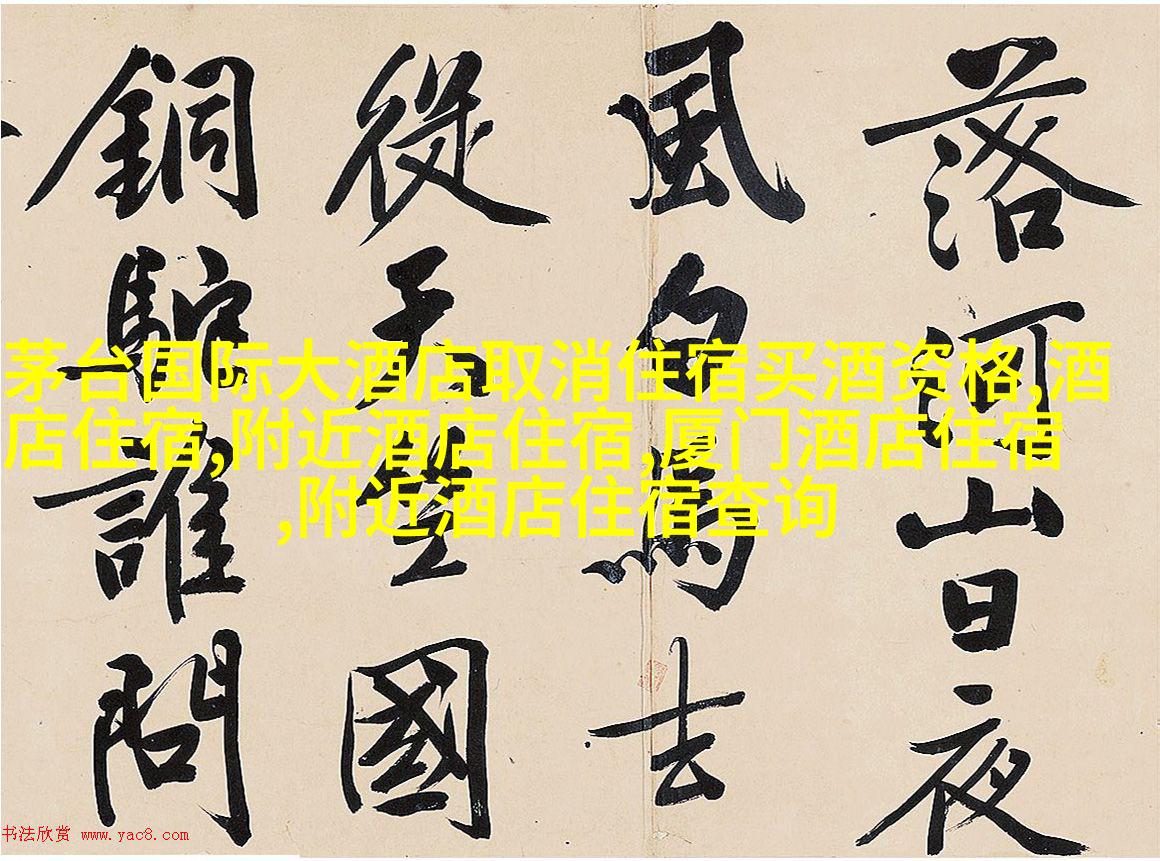 落河山日夜
風白馬去
從天竺國
銅駝誰問
茅台国际大酒店取消住宿买酒资格,酒
店住宿,附近酒店住宿,厦门酒店住宿
,附近酒店住宿查询
书法欣赏 www.yac8.com